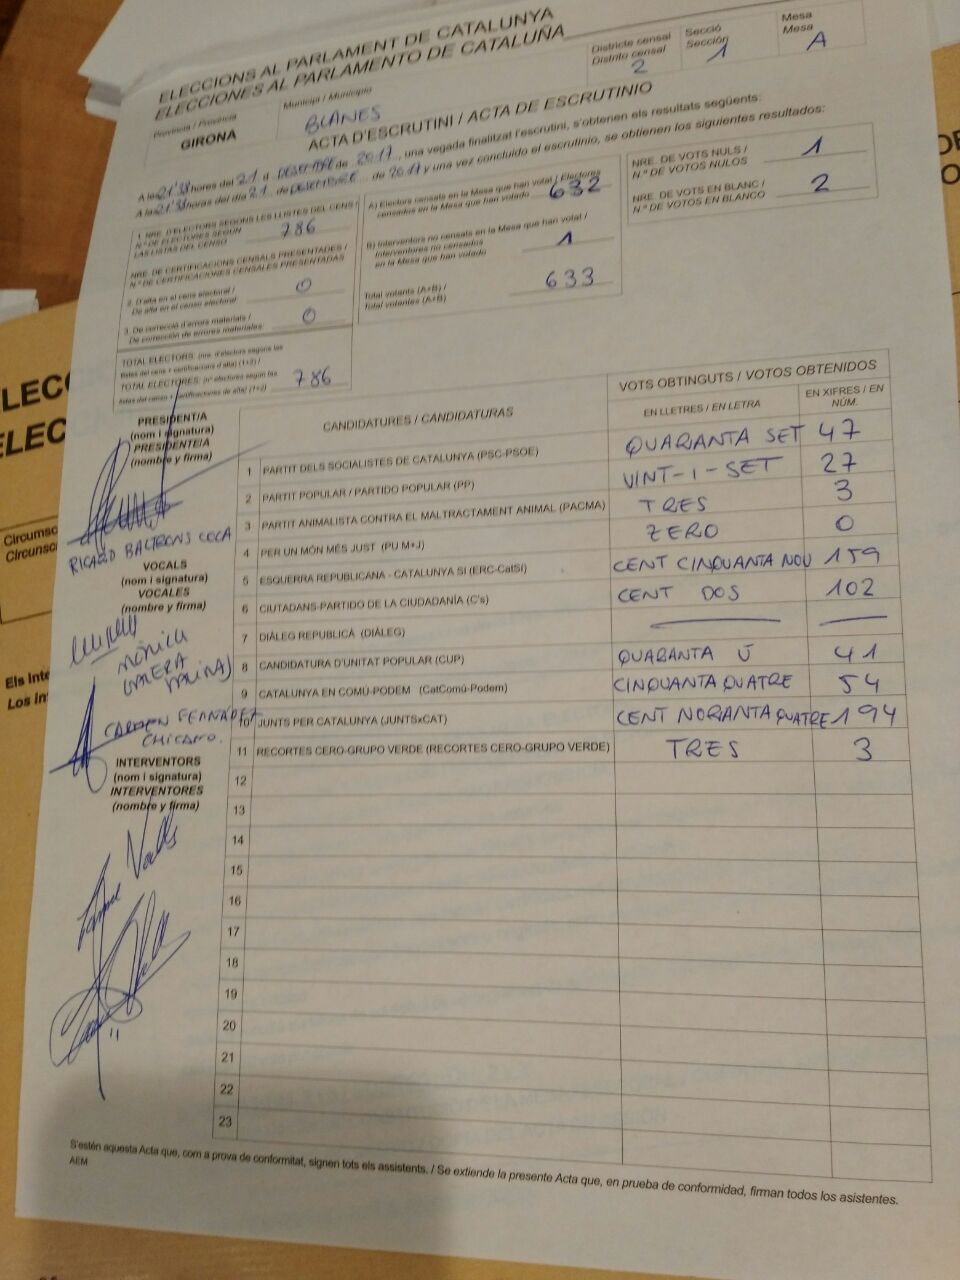 ELECCIONS AL PARLAMENT DE CATALUNYA
ELECCIONES AL PARLAMENTO DE CATALUÑA
Districte censal
Distrito censal
2
Secció
Sección
1
Mesa
Mesa
A
Província / Provincia
GIRONA
Municipi / Municipio
BLANES
ACTA D'ESCRUTINI / ACTA DE ESCRUTINIO
A les 21'38 hores del 21 d DESEMBRE de 2017, una vegada finalitzat l'escrutini, s'obtenen els resultats següents:
A las 21'38 horas del día 21 de DESEMBRE de 2017 y una vez concluido el escrutinio, se obtienen los siguientes resultados:
1. NRE. D'ELECTORS SEGONS LES LLISTES DEL CENS /
N.º DE ELECTORES SEGÚN
LAS LISTAS DEL CENSO
786
NRE. DE CERTIFICACIONS CENSALS PRESENTADES /
N.º DE CERTIFICACIONES CENSALES PRESENTADAS
2. D'alta en el cens electoral /
De alta en el censo electoral
0
3. De correcció d'errors materials /
De corrección de errores materiales
0
TOTAL ELECTORS: (nre. d'electors segons les
llistes del cens + certificacions d'alta) (1+2) /
TOTAL ELECTORES: (nº electores según las
listas del censo + certificaciones de alta) (1+2)
786
A) Electors censats en la Mesa que han votat / Electores
censados en la Mesa que han votado
632
B) Interventors no censats en la Mesa que han votat /
Interventores no censados
en la Mesa que han votado
1
Total votants (A+B) /
Total votantes (A+B)
633
NRE. DE VOTS NULS /
N.º DE VOTOS NULOS
1
NRE. DE VOTS EN BLANC /
N.º DE VOTOS EN BLANCO
2
CANDIDATURES / CANDIDATURAS
VOTS OBTINGUTS / VOTOS OBTENIDOS
EN LLETRES / EN LETRA
EN XIFRES / EN NÚM.
1 PARTIT DELS SOCIALISTES DE CATALUNYA (PSC-PSOE) QUARANTA SET 47
2 PARTIT POPULAR / PARTIDO POPULAR (PP) VINT-I-SET 27
3 PARTIT ANIMALISTA CONTRA EL MALTRACTAMENT ANIMAL (PACMA) TRES 3
4 PER UN MÓN MÉS JUST (PU M+J) ZERO 0
5 ESQUERRA REPUBLICANA - CATALUNYA SÍ (ERC-CatSí) CENT CINQUANTA NOU 159
6 CIUTADANS-PARTIDO DE LA CIUDADANÍA (C's) CENT DOS 102
7 DIÀLEG REPUBLICÀ (DIÀLEG)
8 CANDIDATURA D'UNITAT POPULAR (CUP) QUARANTA U 41
9 CATALUNYA EN COMÚ-PODEM (CatComú-Podem) CINQUANTA QUATRE 54
10 JUNTS PER CATALUNYA (JUNTSxCAT) CENT NORANTA QUATRE 194
11 RECORTES CERO-GRUPO VERDE (RECORTES CERO-GRUPO VERDE) TRES 3
12
13
14
15
16
17
18
19
20
21
22
23
PRESIDENT/A
(nom i signatura)
PRESIDENTE/A
(nombre y firma)
RICARD
VOCALS
(nom i signatura)
VOCALES
(nombre y firma)
MÒNICA
CARMEN FERNÁNDEZ
CHICANO.
INTERVENTORS
(nom i signatura)
INTERVENTORES
(nombre y firma)
S'estén aquesta Acta que, com a prova de conformitat, signen tots els assistents. / Se extiende la presente Acta que, en prueba de conformidad, firman todos los asistentes.
AEM
Circumsc
Circunsc
Els Inte
Los In